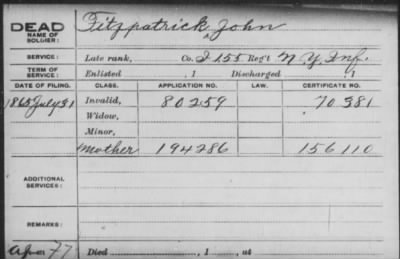 DEAD Fitzpatrick, John
NAME OF SOLDIER:
SERVICE: Late rank, Co. I 155 Reg't N Y Inf.
TERM OF SERVICE: Enlisted , 1 Discharged , 1
DATE OF FILING. CLASS. APPLICATION NO. LAW. CERTIFICATE NO.
1865 July 31 Invalid, 80259 70381
Widow,
Minor,
Mother 194286 156110
ADDITIONAL SERVICES:
REMARKS:
77 Died , 1 , at